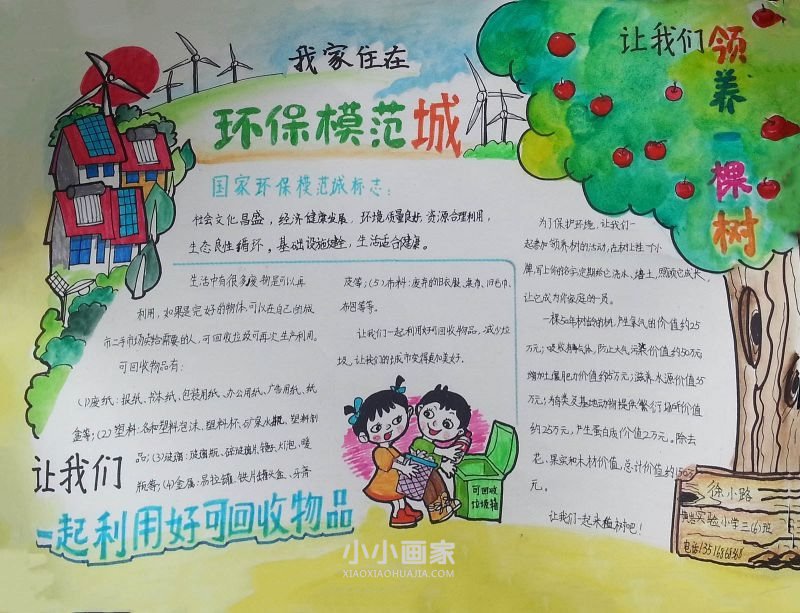 我家住在
环保模范城
国家环保模范城标志：
社会文化昌盛，经济健康发展，环境质量良好，资源合理利用，
生态良性循环，基础设施健全，生活适合健康。
生活中有很多废物是可以再
利用，如果是完好的物体，可以在自己的城
市二手市场卖给需要的人，可回收垃圾可再次生产利用。
可回收物品有：
(1)废纸：报纸、书本纸、包装用纸、办公用纸、广告用纸、纸
盒等；(2)塑料：各种塑料泡沫、塑料杯、矿泉水瓶、塑料制
品；(3)玻璃：玻璃瓶、碎玻璃片、镜子、灯泡、暖
瓶等；(4)金属：易拉罐、铁片、罐头盒、牙膏
皮等；(5)布料：废弃的旧衣服、桌布、旧毛巾、
布包等等。
让我们一起利用好可回收物品，减少垃
圾，让我们的城市变得更加美好。
让我们
一起利用好可回收物品
可回收
垃圾箱
让我们领养一棵树
为了保护环境，让我们一
起参加领养树的活动，在树上挂一个小
牌，写上你的名字，定期给它浇水、培土，照顾它成长，
让它成为你家庭的一员。
一棵50年树龄的树，产生氧气的价值约25
万元；吸收有毒气体，防止大气污染价值约50万元；
增加土壤肥力价值约25万元；滋养水源价值25
万元；为鸟类及其他动物提供繁衍场所价值
约25万元，产生蛋白质价值2万元。除去
花、果实和木材价值，总计价值约150万
元。
让我们一起来植树吧！
徐小路
实验小学三(6)班
电话
小小画家
XIAOXIAOHUAJIA.COM